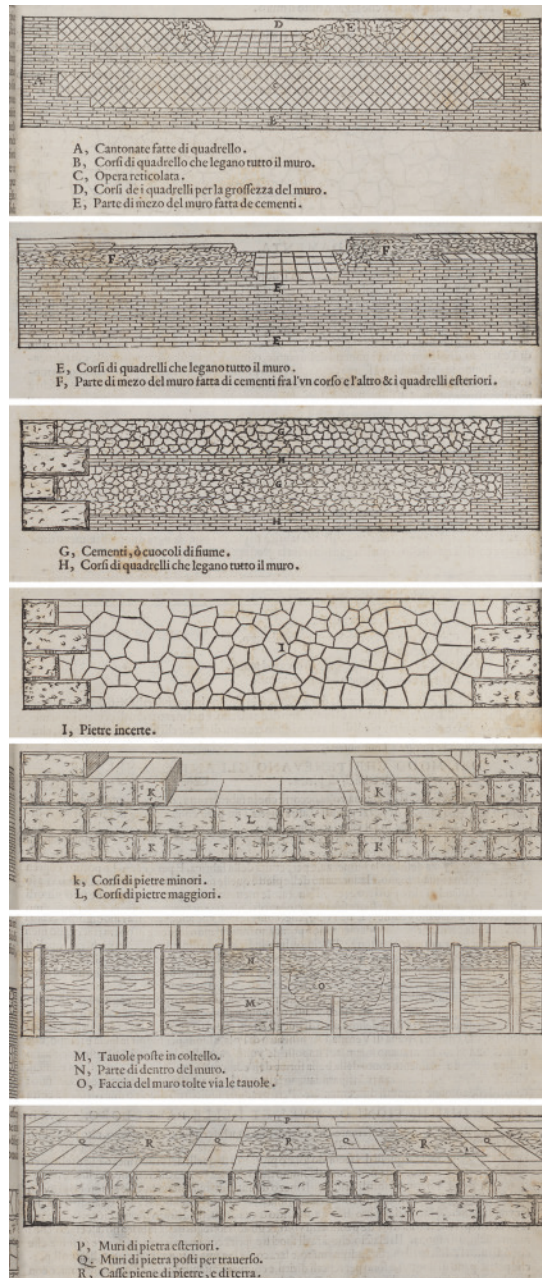 E
D
E
A
A
C
B
A, Cantonate fatte di quadrello.
B, Corſi di quadrello che legano tutto il muro.
C, Opera reticolata.
D, Corſi de i quadrelli per la groſſezza del muro.
E, Parte di mezo del muro fatta de cementi.
F
F
E
E
E, Corſi di quadrelli che legano tutto il muro.
F, Parte di mezo del muro fatta di cementi fra l'vn corſo e l'altro & i quadrelli eſteriori.
G
H
G
H
G, Cementi, ò cuocoli di fiume.
H, Corſi di quadrelli che legano tutto il muro.
I
I, Pietre incerte.
K
K
L
K
K
k, Corſi di pietre minori.
L, Corſi di pietre maggiori.
N
O
M
M, Tauole poſte in coltello.
N, Parte di dentro del muro.
O, Faccia del muro tolte via le tauole.
P
Q
R
Q
R
Q
R
Q
P, Muri di pietra eſteriori.
Q, Muri di pietra poſti per trauerſo.
R, Caſſe piene di pietre, e di terra.